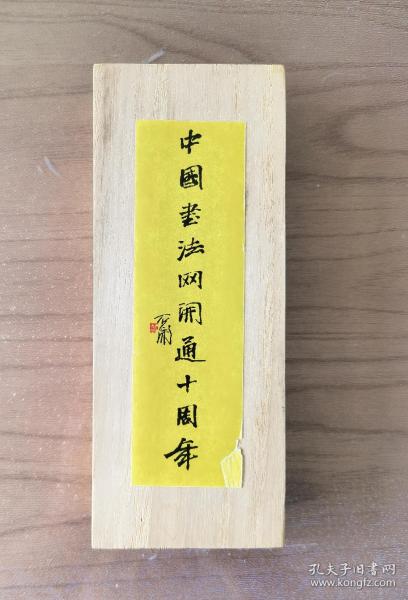 中國书法网開通十周年
孔夫子旧书网
www.kongfz.com